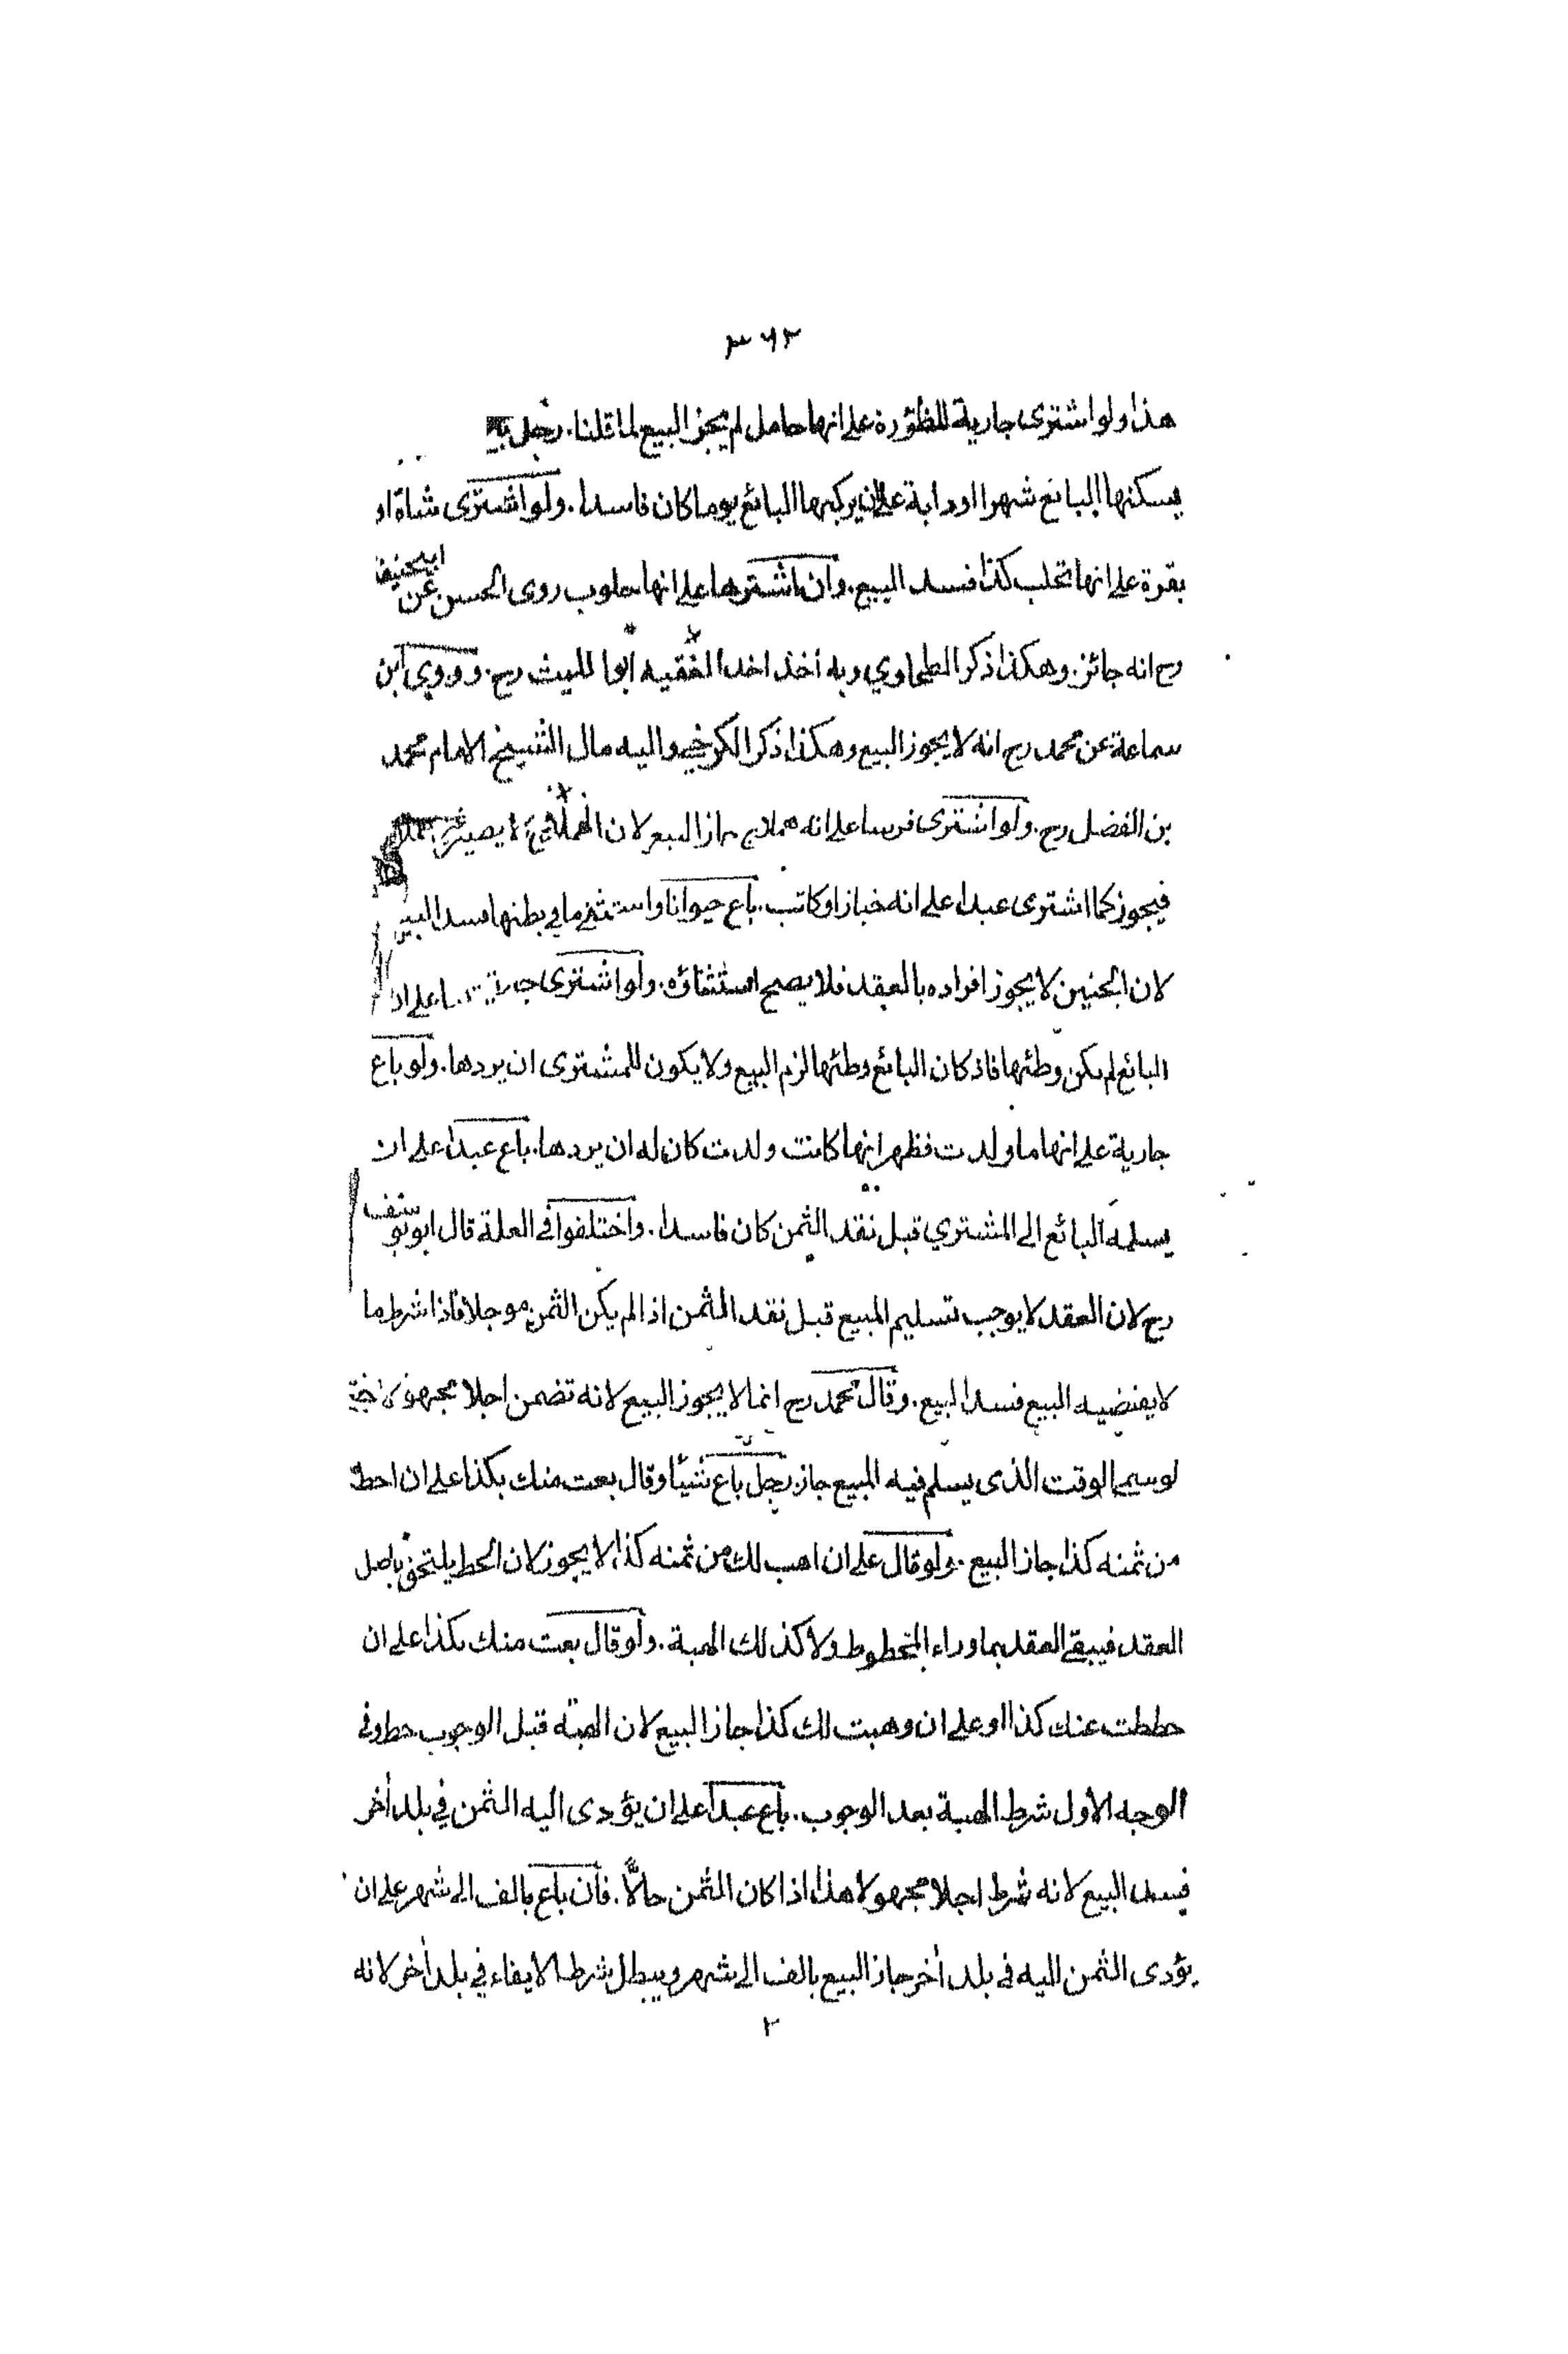 ٣٦٢
هذا ولو اشترى جارية للظؤرة على انها حامل لم يجز البيع لما قلنا. رجل
يسكنها البائع شهرا او دابة على ان يركبها البائع يوما كان فاسدا. ولو اشترى شاة او
بقرة على انها تحلب كذا فسد البيع. وان اشترها على انها حلوب روى الحسن عن ابيحنيفة
رح انه جائز. وهكذا ذكر الطحاوي وبه أخذ الفقيه ابوا لليث رح. وروي ابن
سماعة عن محمد رح انه لا يجوز البيع وهكذا ذكر الكرخي واليه مال الشيخ الامام محمد
بن الفضل رح. ولو اشترى فرسا على انه هملاج جاز البيع لان الهملاج لا يصير
فيجوز كما اشترى عبدا على انه خباز او كاتب. باع حيوانا واستثنى ما في بطنها فسد البيع
لان الجنين لا يجوز افراده بالعقد فلا يصح استثنائه. ولو اشترى جارية على ان
البائع لم يكن وطئها فاذ كان البائع وطئها لزم البيع ولا يكون للمشترى ان يردها. ولو باع
جارية على انها ما ولدت فظهر انها كانت ولدت كان له ان يردها. باع عبدا على ان
يسلمه البائع الى المشتري قبل نقد الثمن كان فاسدا. واختلفوا فى العلة قال ابو يوسف
رح لان العقد لا يوجب تسليم المبيع قبل نقد الثمن اذا لم يكن الثمن موجلا فاذا شرط ما
لا يقتضيه البيع فسد البيع. وقال محمد رح انما لا يجوز البيع لانه تضمن اجلا مجهولا حتى
لو سمى الوقت الذى يسلم فيه المبيع جاز. رجل باع شيئا وقال بعت منك بكذا على ان احط
من ثمنه كذا جاز البيع. ولو قال على ان اهب لك من ثمنه كذا لا يجوز لان الحط يلتحق باصل
العقد فيبقى العقد بما وراء المحطوط ولا كذلك الهبة. ولو قال بعت منك بكذا على ان
حططت عنك كذا او على ان وهبت لك كذا جاز البيع لان الهبة قبل الوجوب حط وفى
الوجه الاول شرط الهبة بعد الوجوب. باع عبدا على ان يؤدى اليه الثمن في بلد أخر
فسد البيع لانه شرط اجلا مجهولا هذا اذا كان الثمن حالاً. فان باع بالف الى شهر على ان
يؤدى الثمن اليه فى بلد أخر جاز البيع بالف الى شهر ويبطل شرط الايفاء في بلد أخر لانه
٢